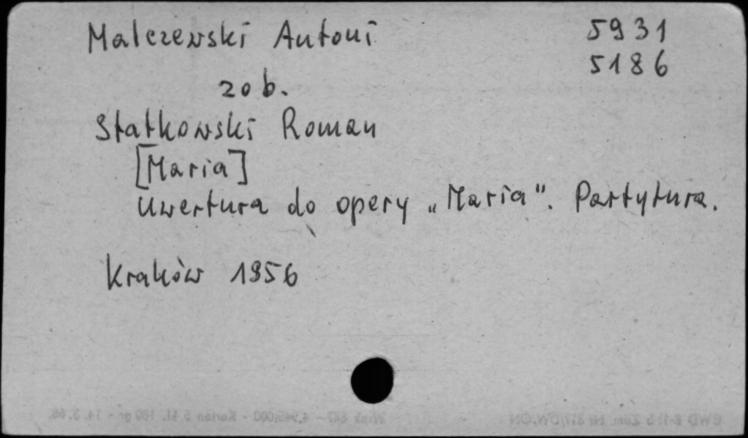 Malczewski Antoni 5931
5186
zob.
Statkowski Roman
[Maria]
Uwertura do opery „Maria". Partytura.
Kraków 1956